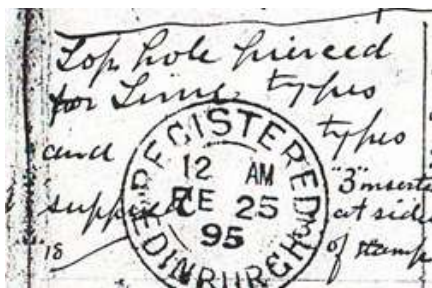 Top hole pierced
for Time types
and types
supplied
"18
"3" inserted
at side
of stamp
REGISTERED
12 AM
DE 25
95
EDINBURGH